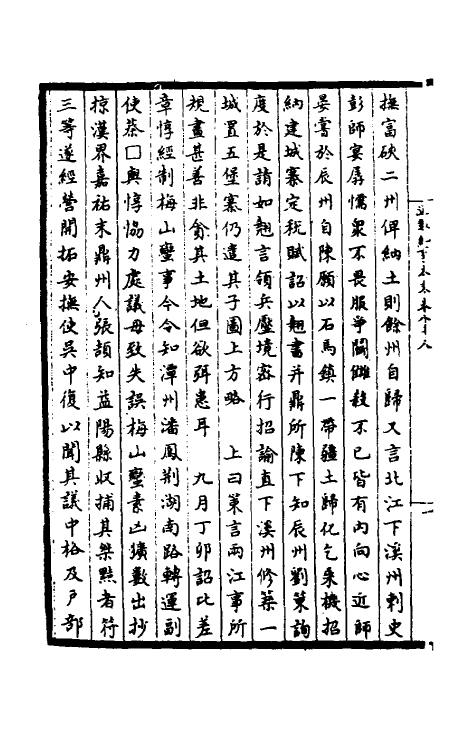 撫富硤二州俾納土則餘州自歸又言北江下溪州刺史
彭師宴孱懦衆不畏服爭鬭讎殺不已皆有內向心近師
晏嘗於辰州自陳願以石馬鎮一帶疆土歸化乞乘機招
納建城寨定稅賦詔以翹書并鼎所陳下知辰州劉策詢
度於是請如翹言領兵壓境密行招諭直下溪州修築一
城置五堡寨仍遣其子圖上方略 上曰策言兩江事所
規畫甚善非貪其土地但欲弭患耳 九月丁卯詔比差
章惇經制梅山蠻事今令知潭州潘夙荆湖南路轉運副
使蔡□與惇恊力處議毋致失誤梅山蠻素凶獷數出抄
掠漢界嘉祐末鼎州人張頡知益陽縣收捕其桀黠者符
三等遂經營開拓安撫使吳中復以聞其議中格及戶部